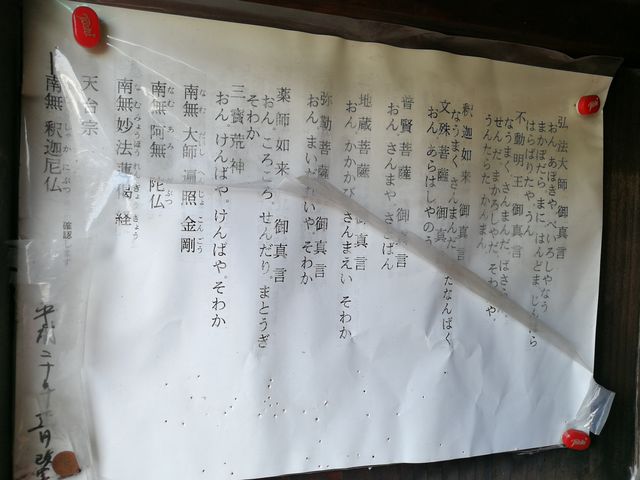 弘法大師 御真言
おん、あぼきゃ、べいろしゃなう
まかぼだら、まに、はんどま、じん
はらばりたやうん
不動明王 御真言
なうまく、さんまんだ、ばさ
せんだ、まかろしゃだ、そわ
うんたらた、かんまん
釈迦如来 御真言
なうまく、さんまんだ たなんばく
文殊菩薩 御真言
おん、あらはしゃのう
普賢菩薩 御真言
おん、さんまや、さとばん
地蔵菩薩 御真言
おん、かかかび、さんまえい、そわか
弥勒菩薩 御真言
おん、まい れいや、そわか
薬師如来 御真言
おん、ころころ、せんだり、まとうぎ
そわか
三寶荒神
おん、けんばや、けんばや、そわか
南無 大師 遍照 金剛
南無 阿無 陀仏
南無妙法蓮 経
天台宗
南無 釈迦尼仏 確認
平成二十年 月